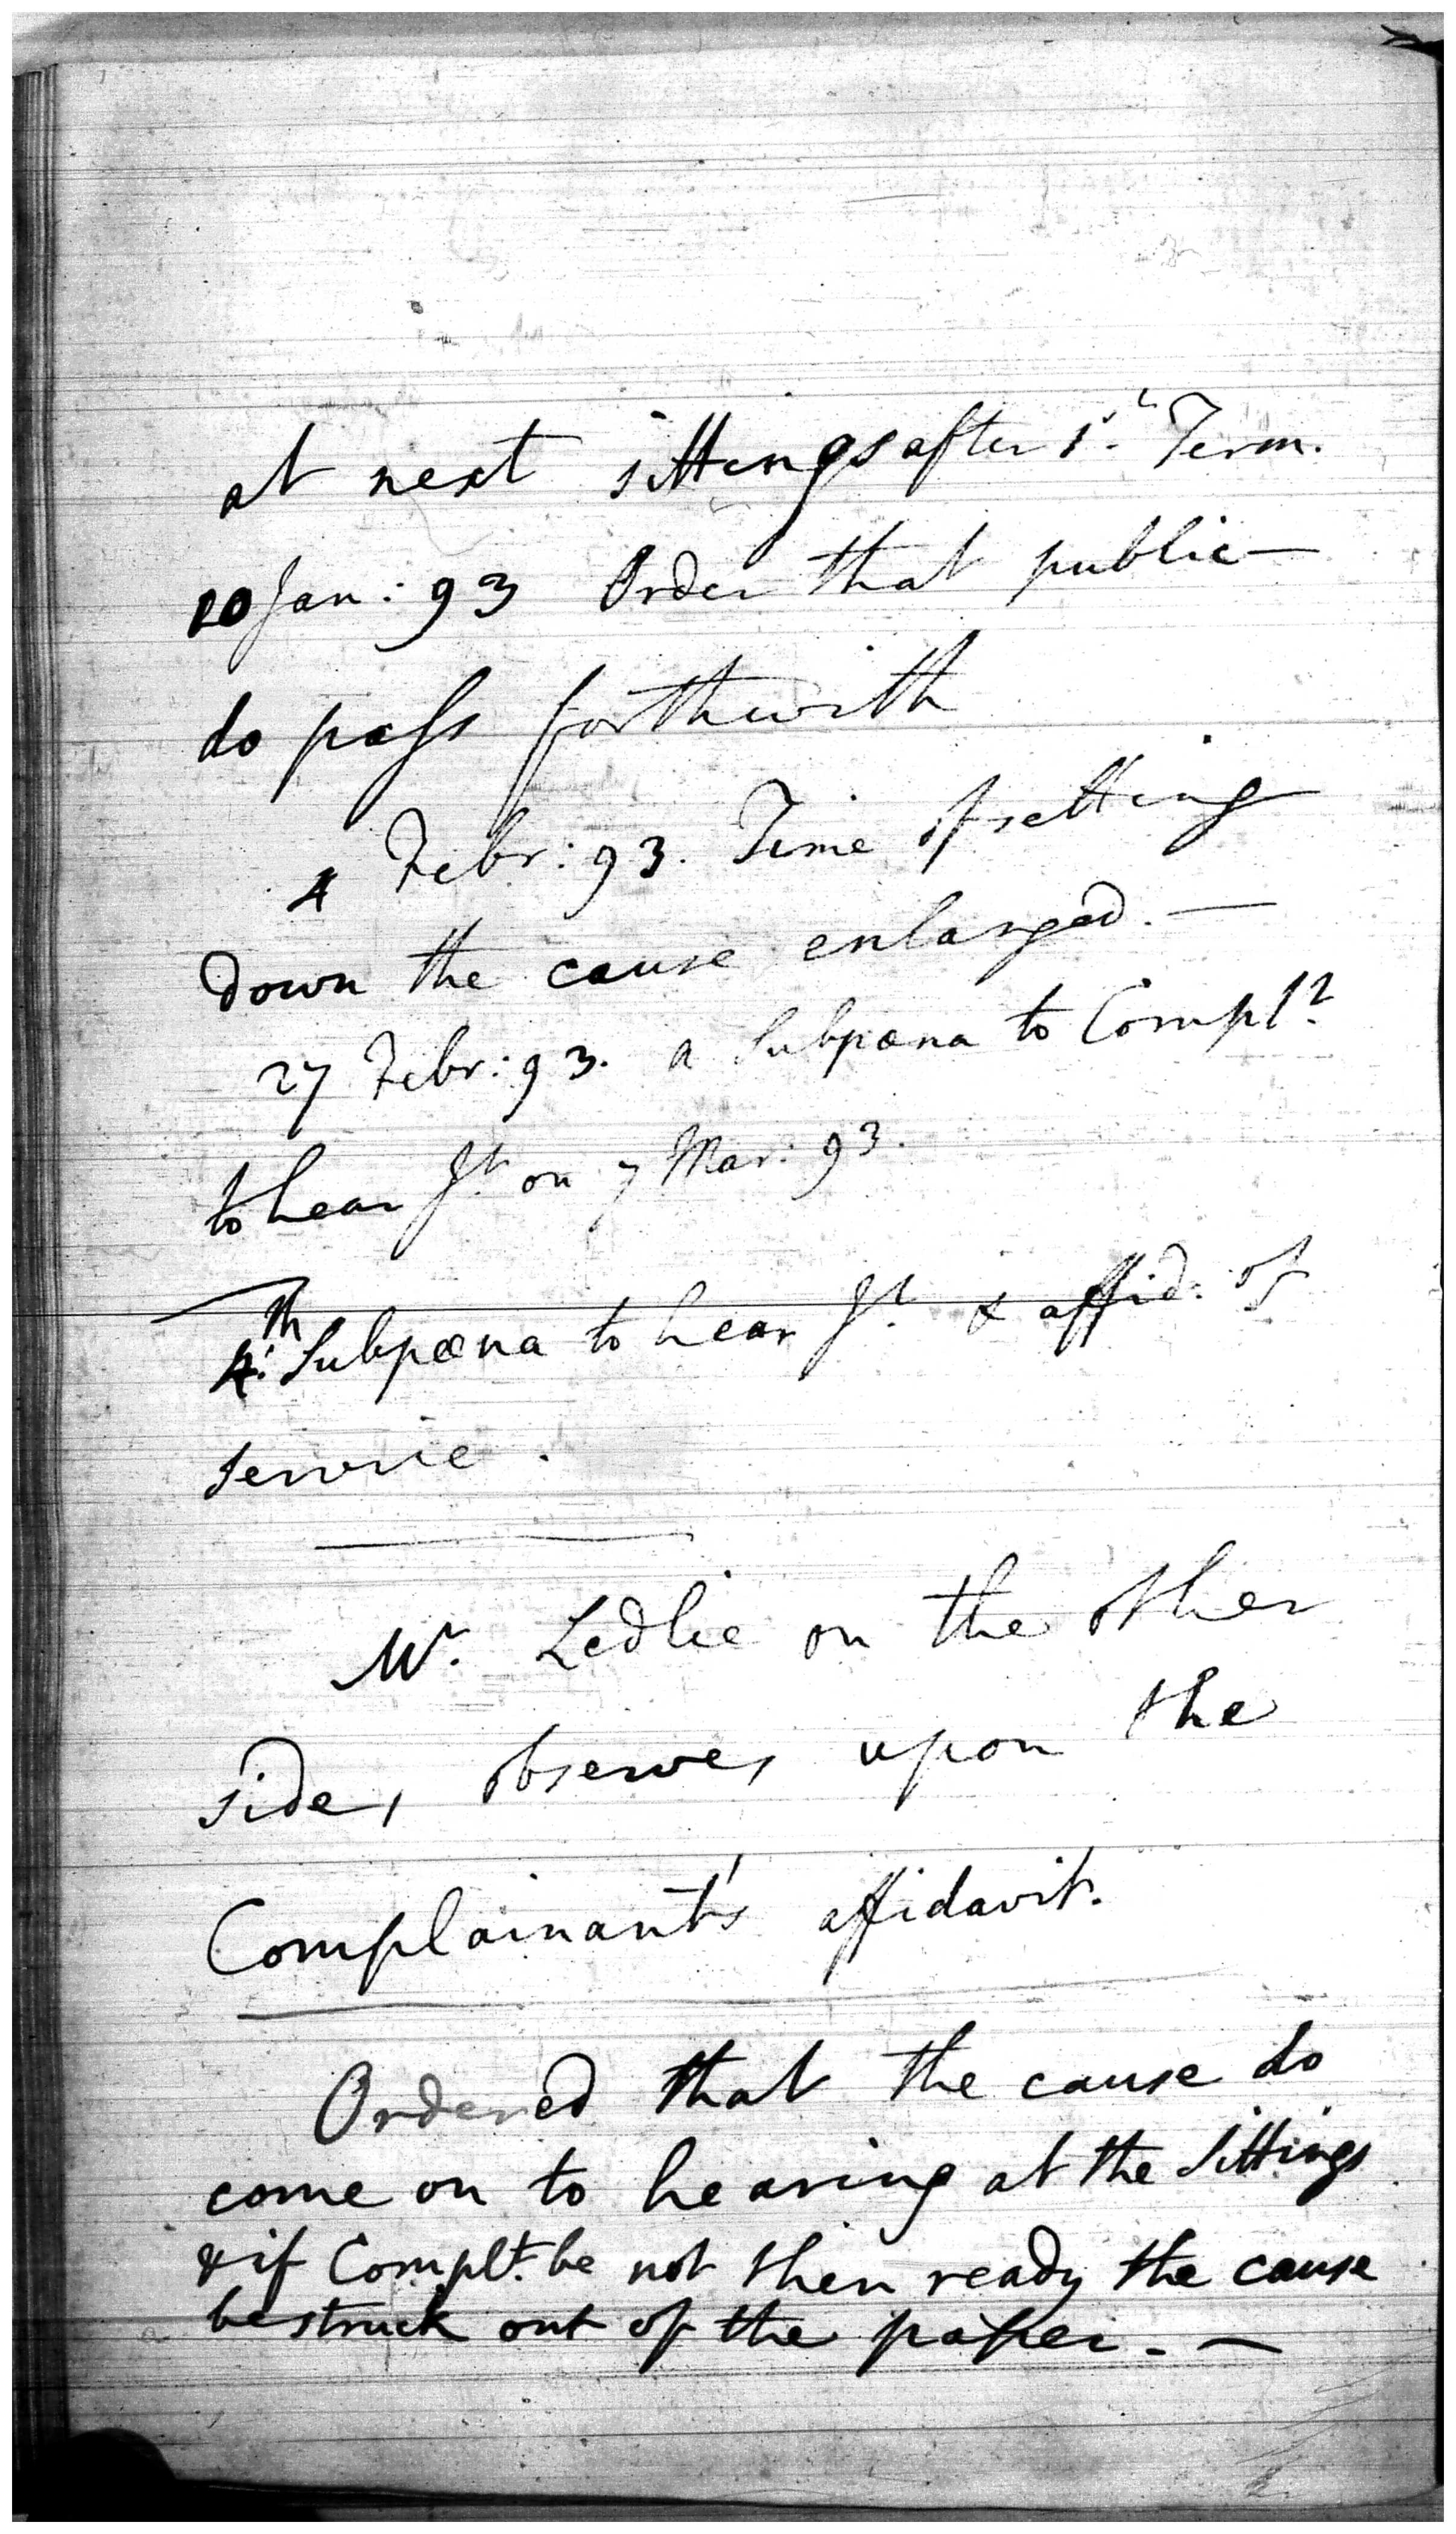 at next sittings after 1st Term.
10 Jan: 93 Order that public—
do pass forthwith
4 Febr: 93. Time of setting
down the cause enlarged. —
27 Febr: 93. a Subpœna to Complt
to hear Jt on 7 Mar: 93.
4th Subpœna to hear Jt & affid: of
service.
Mr. Ledlie on the other
side, observes upon the
Complainant's affidavit.
Ordered that the cause do
come on to hearing at the Sittings
& if Complt. be not then ready the cause
be struck out of the paper. —